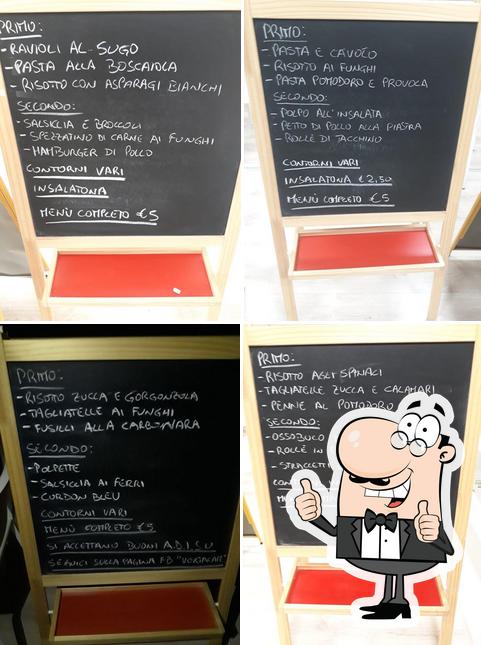 PRIMO:
- RAVIOLI AL SUGO
- PASTA ALLA BOSCAIOLA
- RISOTTO CON ASPARAGI BIANCHI
SECONDO:
- SALSICCIA E BROCCOLI
- SPEZZATINO DI CARNE AI FUNGHI
- HAMBURGER DI POLLO
CONTORNI VARI
INSALATONA
MENÙ COMPLETO €5
PRIMO:
- PASTA E CAVOLO
- RISOTTO AI FUNGHI
- PASTA POMODORO E PROVOLA
SECONDO:
- POLPO ALL'INSALATA
- PETTO DI POLLO ALLA PIASTRA
- ROLLÈ DI TACCHINO
CONTORNI VARI
INSALATONA €2,50
MENÙ COMPLETO €5
PRIMO:
- RISOTTO ZUCCA E GORGONZOLA
- TAGLIATELLE AI FUNGHI
- FUSILLI ALLA CARBONARA
SECONDO:
- POLPETTE
- SALSICCIA AI FERRI
- CORDON BLEU
CONTORNI VARI
MENÙ COMPLETO €5
SI ACCETTANO BUONI A.DI.S.U
SEGUICI SULLA PAGINA FB
PRIMO:
- RISOTTO AGLI SPINACI
- TAGLIATELLE ZUCCA E CALAMARI
- PENNE AL POMODORO
SECONDO:
- OSSOBUCO
- ROLLÈ IN
- STRACCETTI